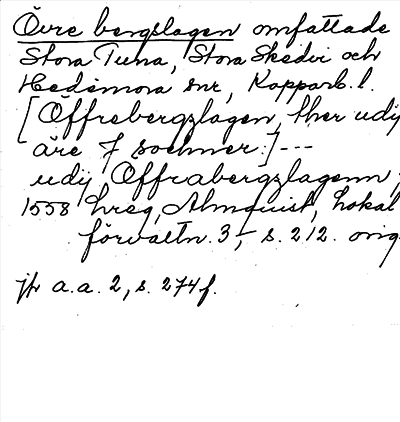 Övre bergslagen omfattade
Stora Tuna, Stora Skedvi och
Hedemora snr, Kopparb. l.
[Öffrebergzlagen, ther udij
äre 7 sochner:] ---
udij Öffrabergzlagenn
1558 hreg, Almquist, Lokal
förvaltn. 3, s. 212. orig.
jfr a.a. 2, s. 274 f.